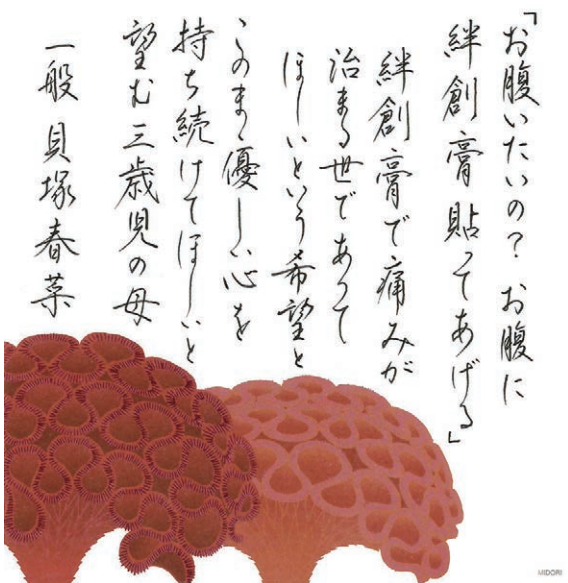 「お腹いたいの？ お腹に
絆創膏貼ってあげる」
絆創膏で痛みが
治まる世であって
ほしいという希望と
このまま優しい心を
持ち続けてほしいと
望む三歳児の母
一般 貝塚春菜
MIDORI